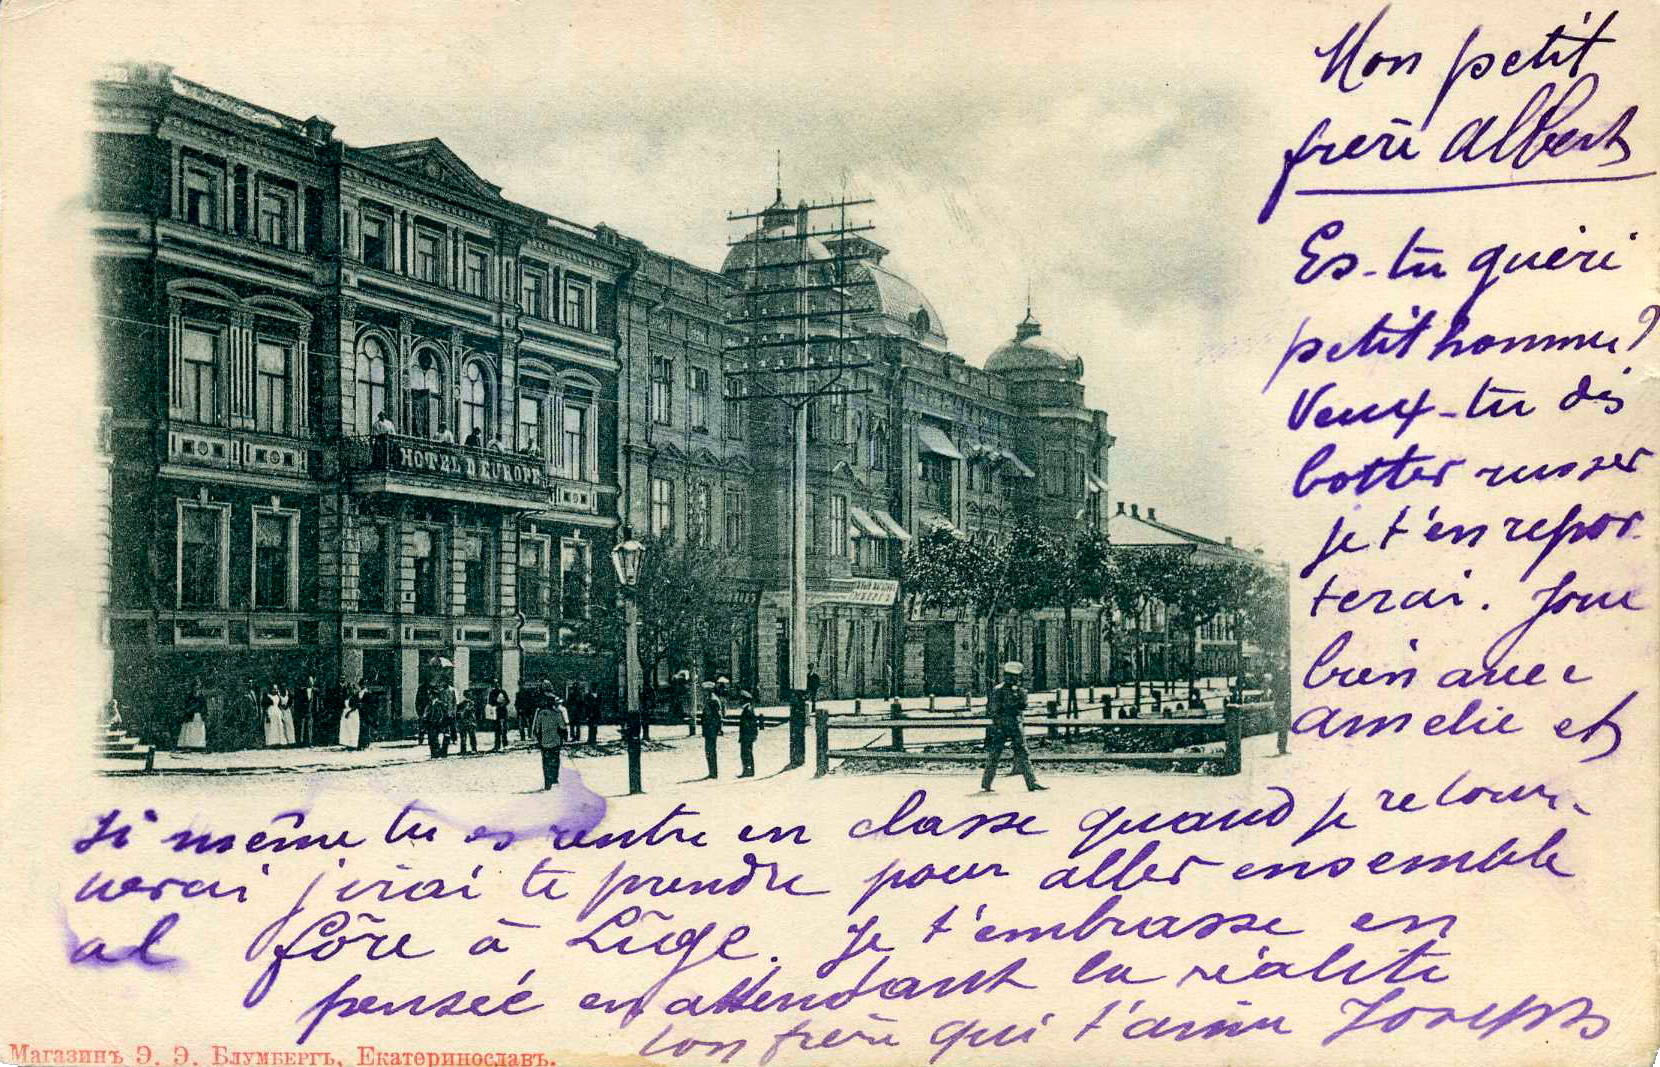 Mon petit
frère Albert
Es-tu guéri
petit homme?
Veux-tu des
bottes russes
je t'en repor-
terai. Joue
bien avec
Amelie et
si même tu es rentré en classe quand je retour-
nerai j'irai te prendre pour aller ensemble
al fôre à Lîge. Je t'embrasse en
pensée en attendant la réalité
ton frère qui t'aime Joseph
HOTEL D'EUROPE
Магазинъ Э. Э. Блумбергъ, Екатеринославъ.